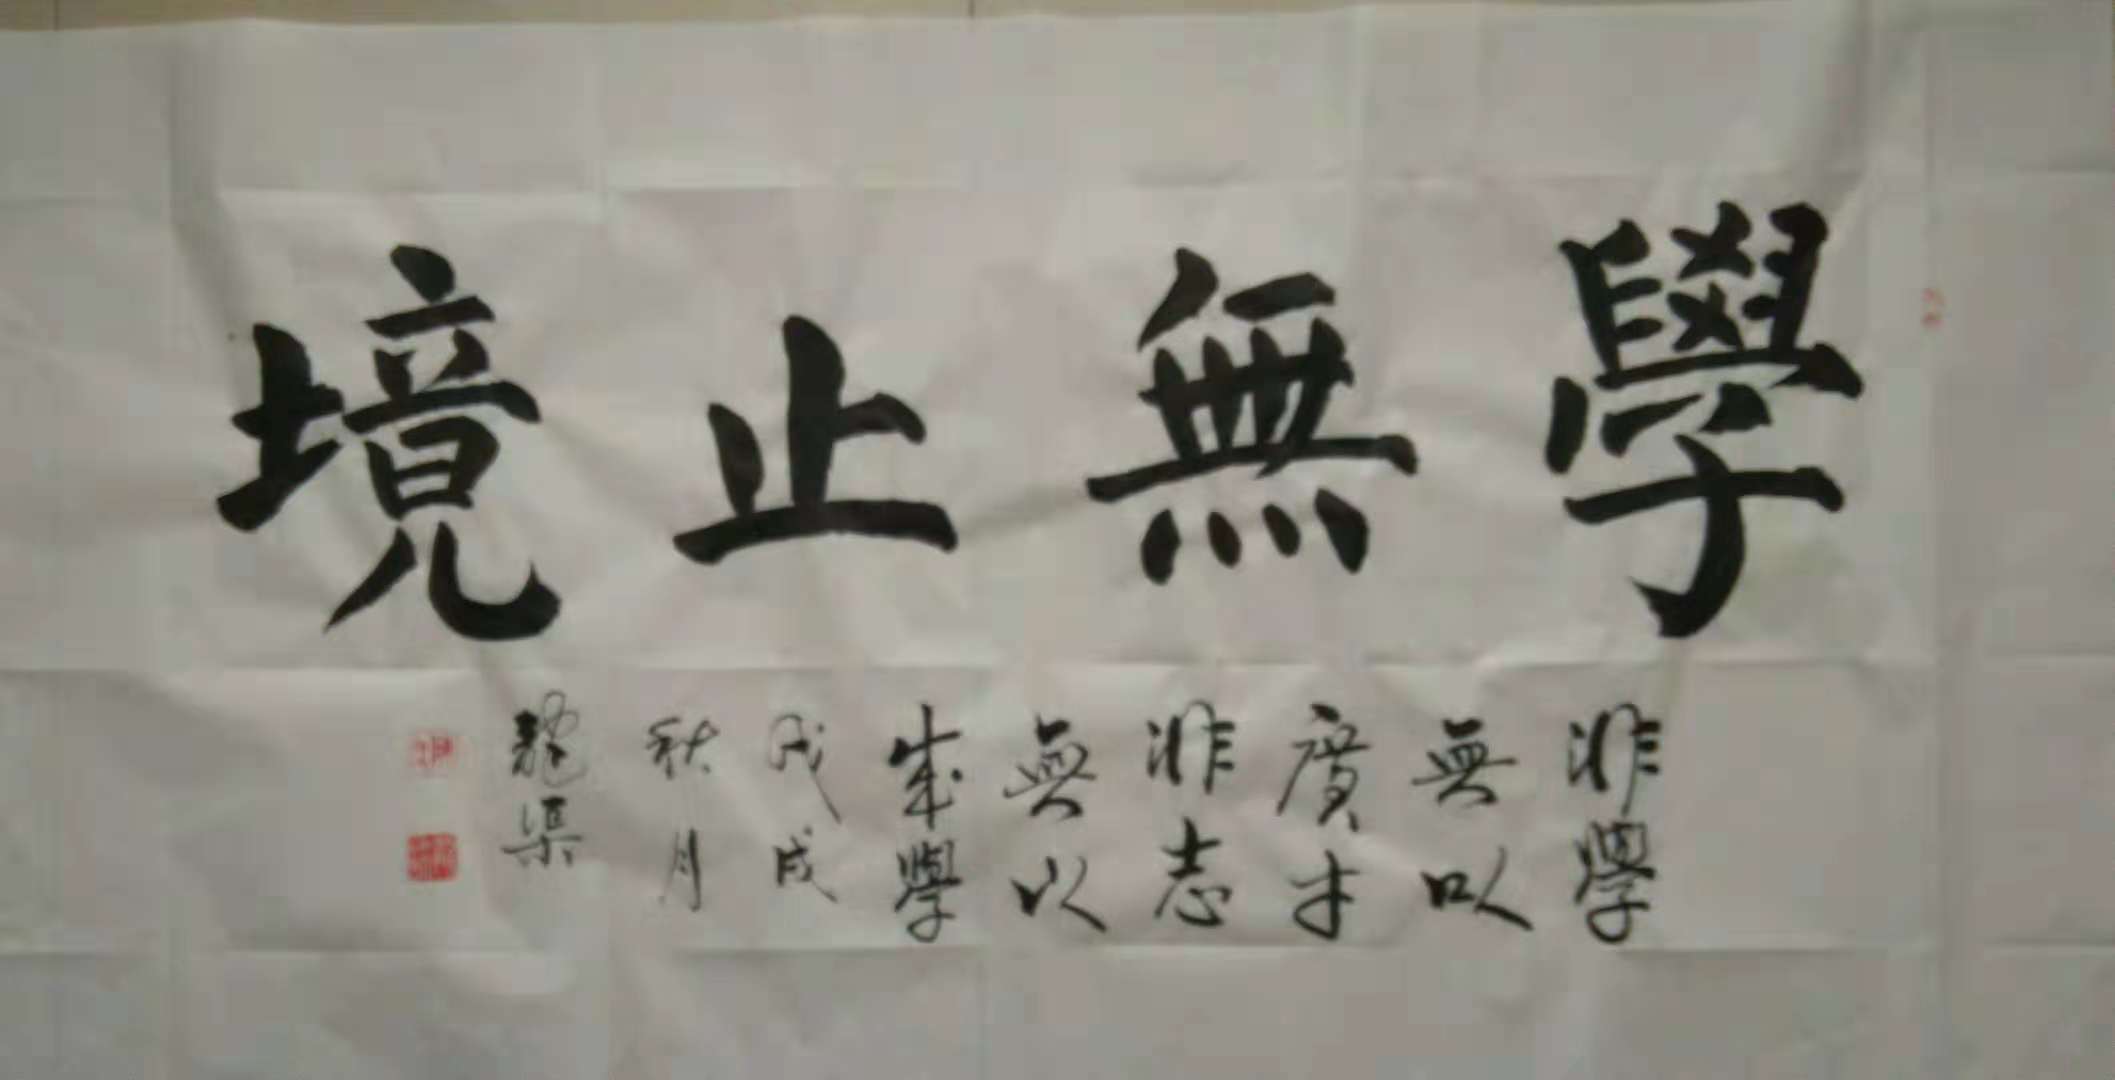 學無止境
非學
無以
廣才
非志
無以
成學
戊戌
秋月
龍渠